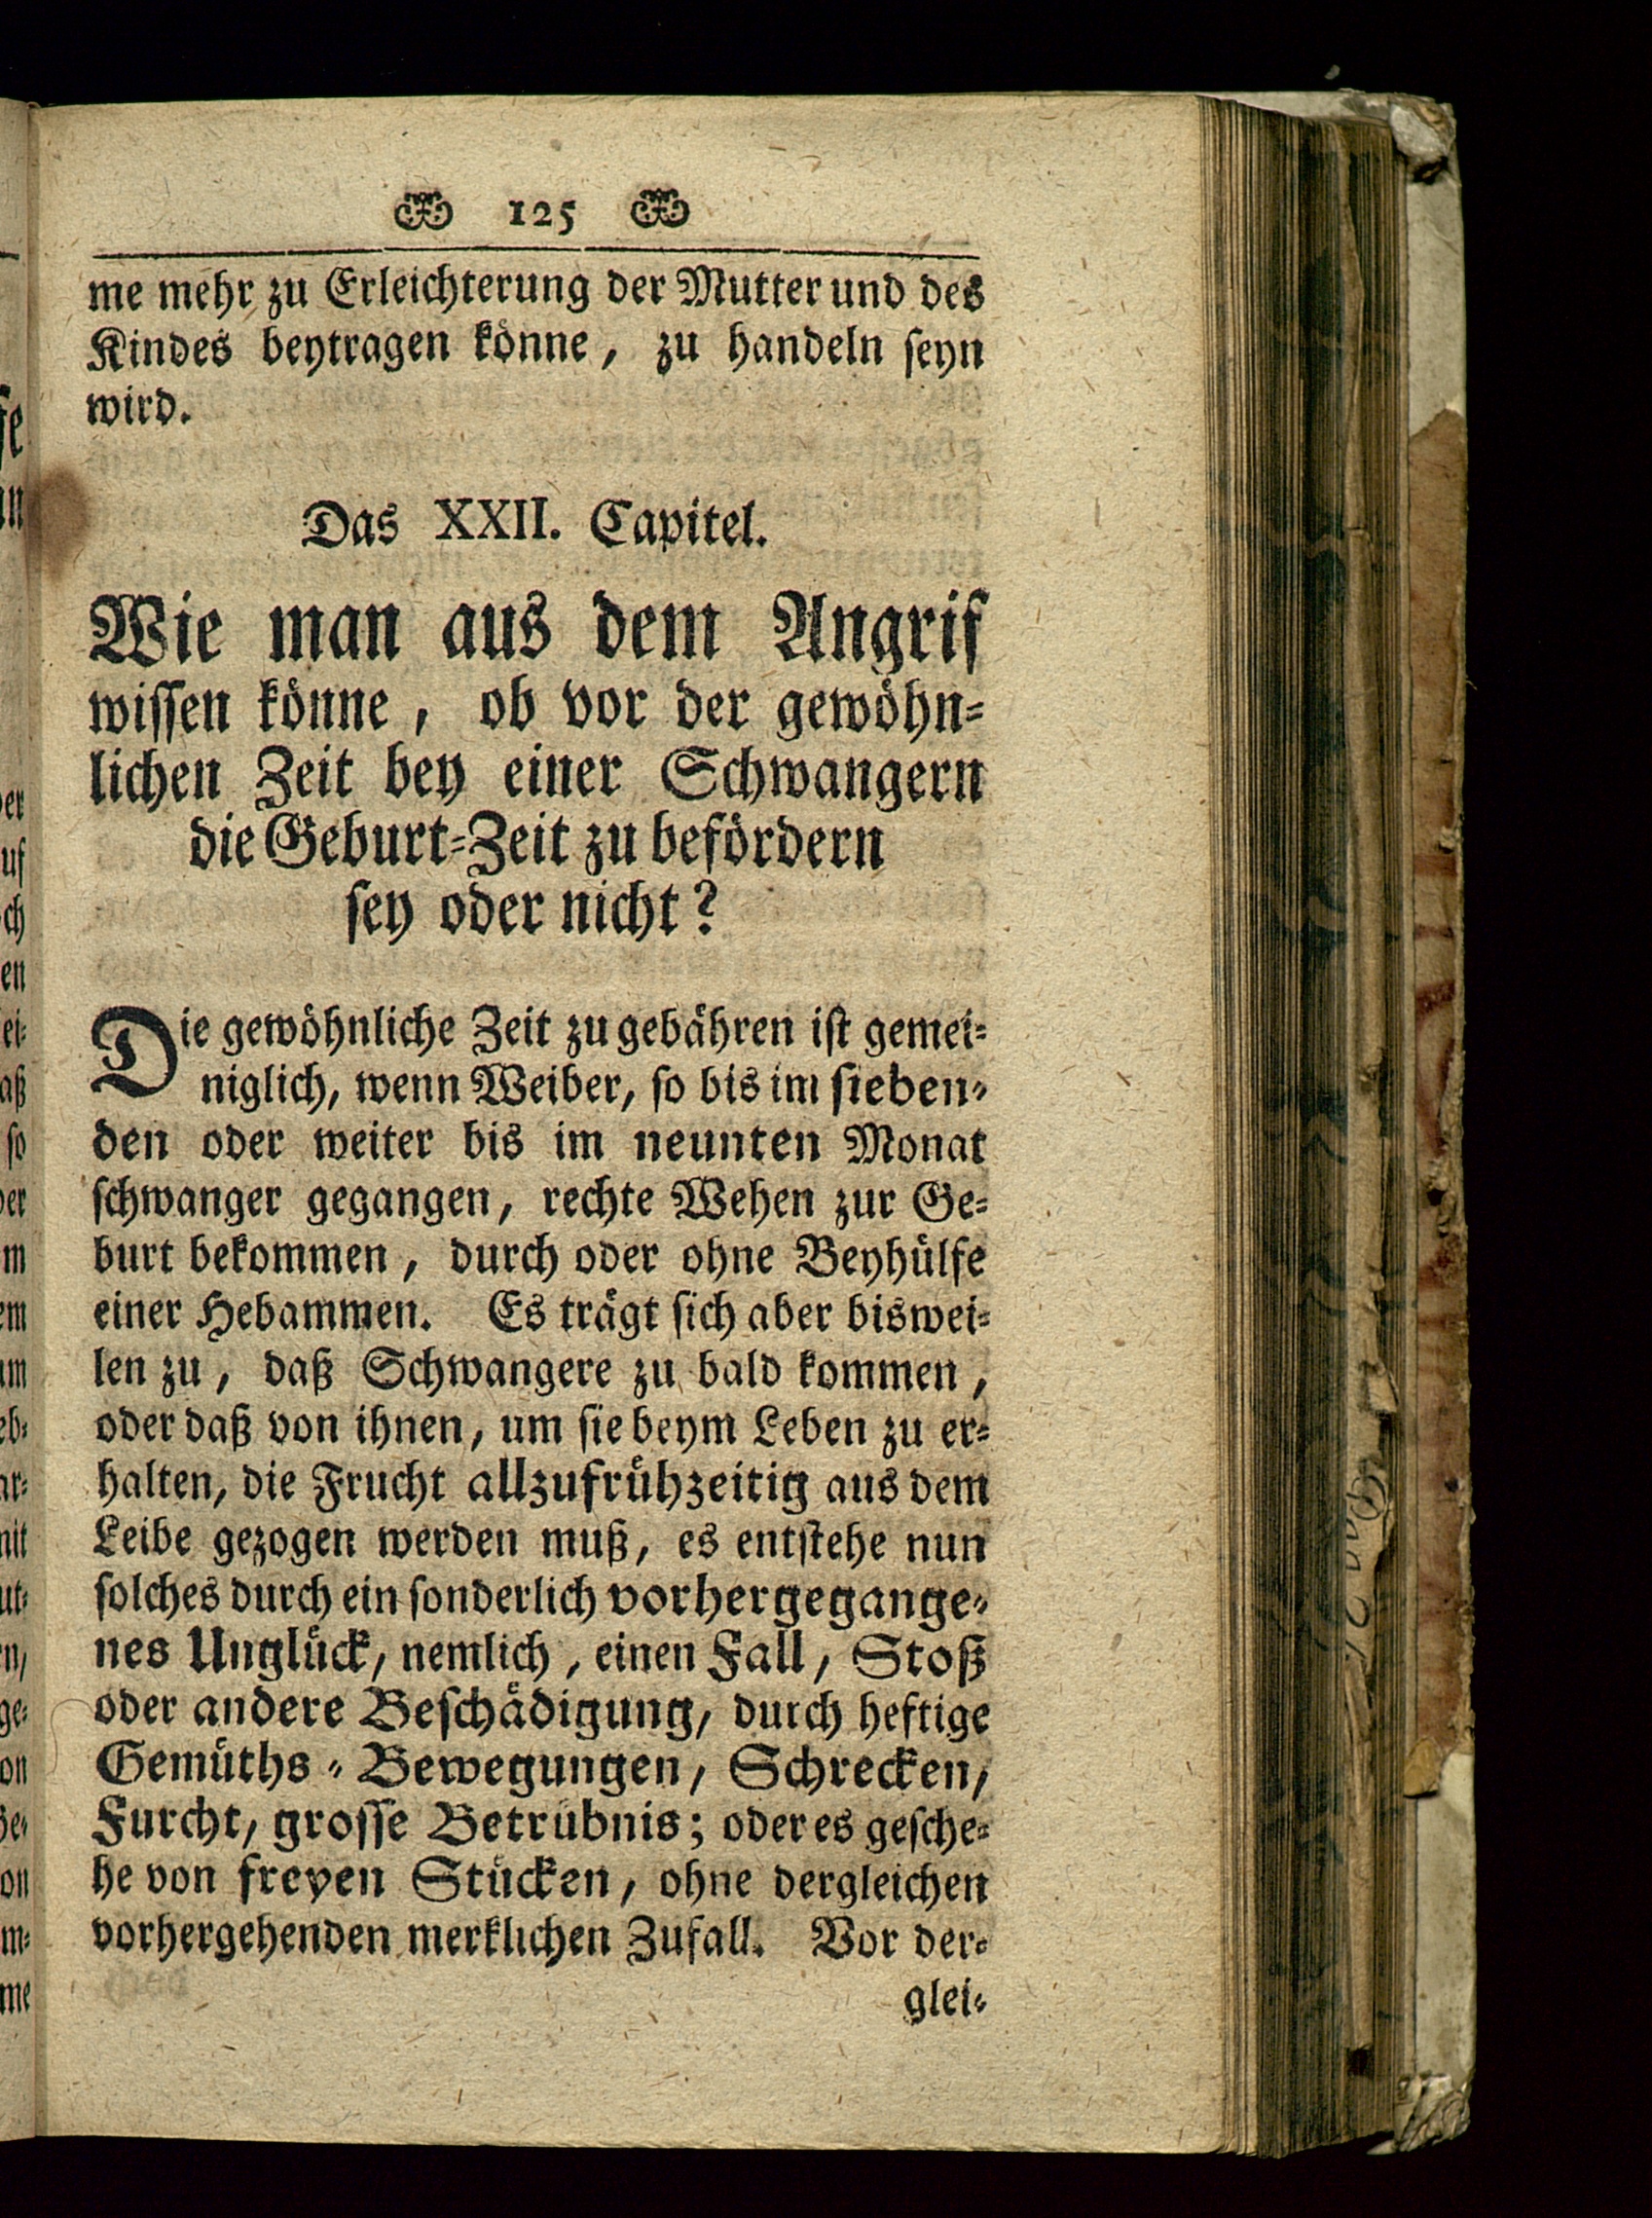 125
me mehr zu Erleichterung der Mutter und des
Kindes beytragen könne, zu handeln seyn
wird.
Das XXII. Capitel.
Wie man aus dem Angrif
wissen könne, ob vor der gewöhn-
lichen Zeit bey einer Schwangern
die Geburt-Zeit zu befördern
sey oder nicht?
Die gewöhnliche Zeit zu gebähren ist gemei-
niglich, wenn Weiber, so bis im sieben-
den oder weiter bis im neunten Monat
schwanger gegangen, rechte Wehen zur Ge-
burt bekommen, durch oder ohne Beyhülfe
einer Hebammen. Es trägt sich aber biswei-
len zu, daß Schwangere zu bald kommen,
oder daß von ihnen, um sie beym Leben zu er-
halten, die Frucht allzufrühzeitig aus dem
Leibe gezogen werden muß, es entstehe nun
solches durch ein sonderlich vorhergegange-
nes Unglück, nemlich, einen Fall, Stoß
oder andere Beschädigung, durch heftige
Gemüths-Bewegungen, Schrecken,
Furcht, grosse Betrübnis; oder es gesche-
he von freyen Stücken, ohne dergleichen
vorhergehenden merklichen Zufall. Vor der-
glei-